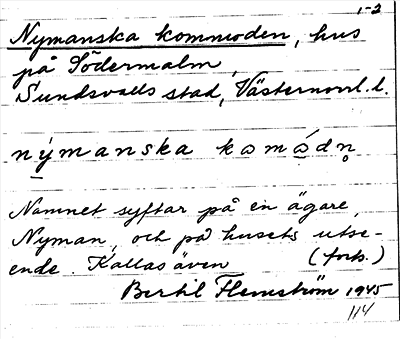 1-2
Nymanska kommoden, hus
på Södermalm,
Sundsvalls stad, Västernorrl. l.
nýmanska komǻdn̥
Namnet syftar på en ägare,
Nyman, och på husets utse-
ende. Kallas även (forts.)
Bertil Flemström 1945
114